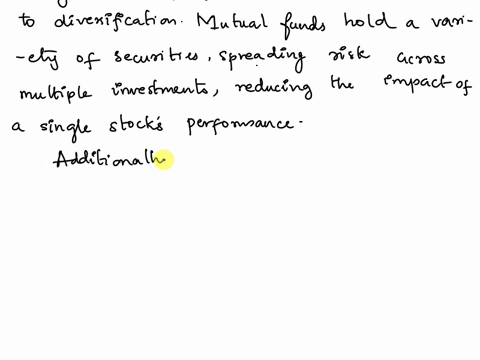 to diversification. Mutual funds hold a vari-
-ety of securities, spreading risk across
multiple investments, reducing the impact of
a single stock's performance.
Additionall